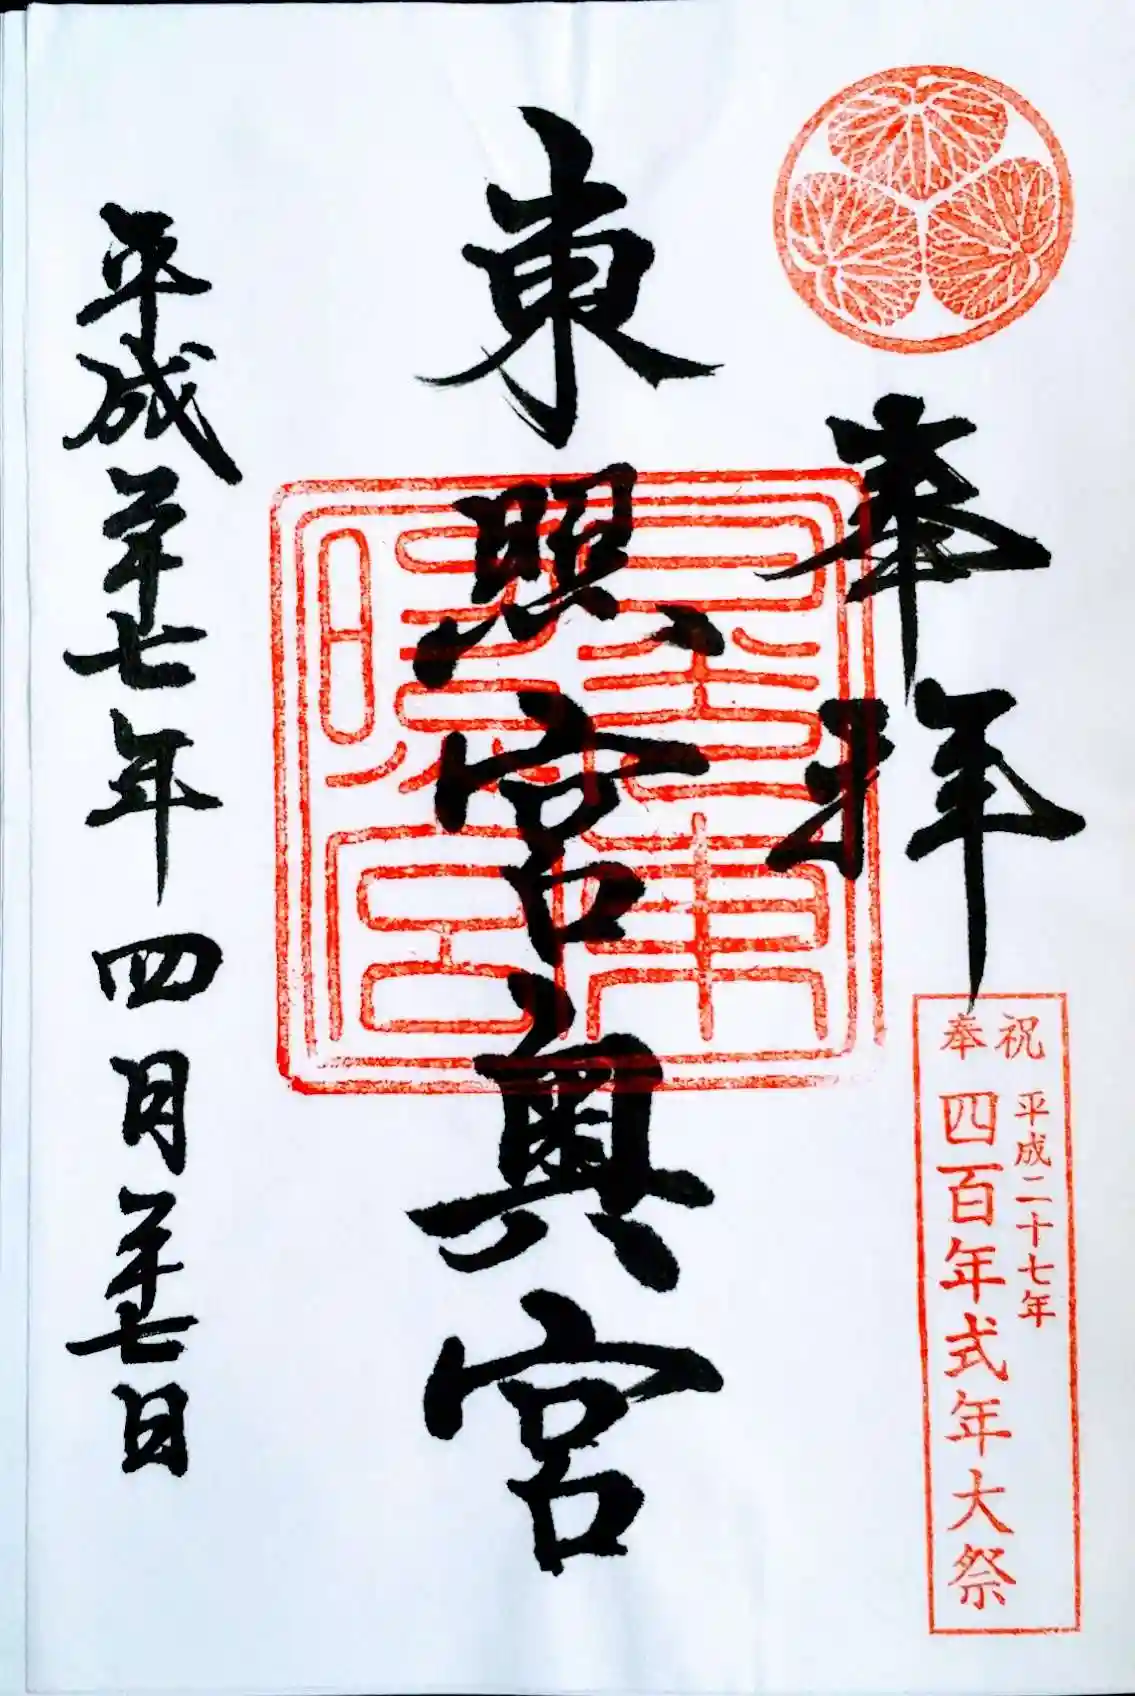 奉拝
奉祝
平成二十七年
四百年式年大祭
東照宮奥宮
平成二十七年四月二十七日